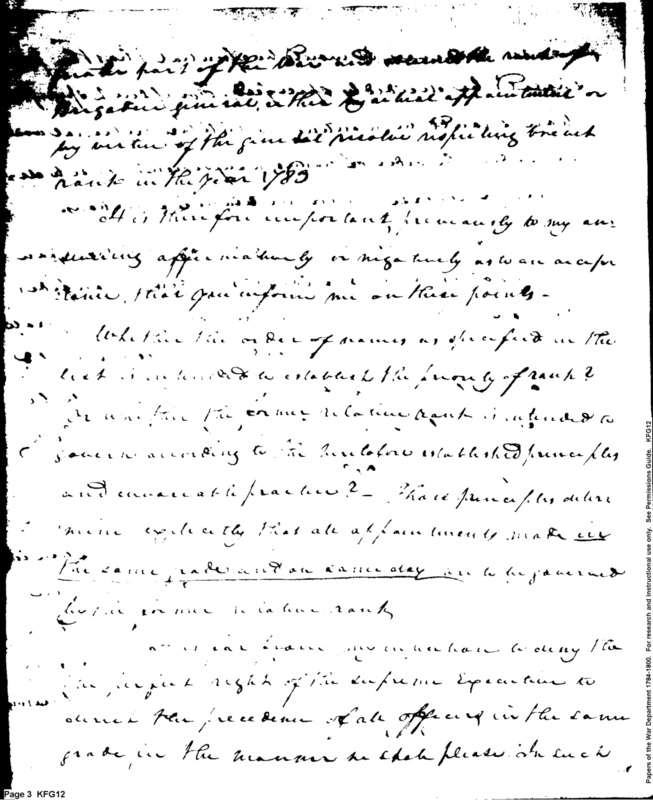 part of the War and the rank of
Brigadier general, either by actual appointment or
by virtue of the general resolve respecting brevet
rank in the year 1783
It is therefore important, previously to my an-
swering affirmatively or negatively as to an accep
tance, that you inform me on these points -
Whether the order of names as specified in the
list is intended to establish the priority of rank?
Or whether the former relative rank is intended to
govern according to the heretofore established principles
and invariable practice? - Those principles deter
mine explicitly that all appointments made in
the same grade and on same day are to be governed
by the former relative rank
It is far from my intention to deny the
the perfect right of the supreme Executive to
direct the precedence of all officers in the same
grade, in the manner he shall please. In such
Page 3 KFG12
Papers of the War Department 1784-1800. For research and instructional use only. See Permissions Guide. KFG12